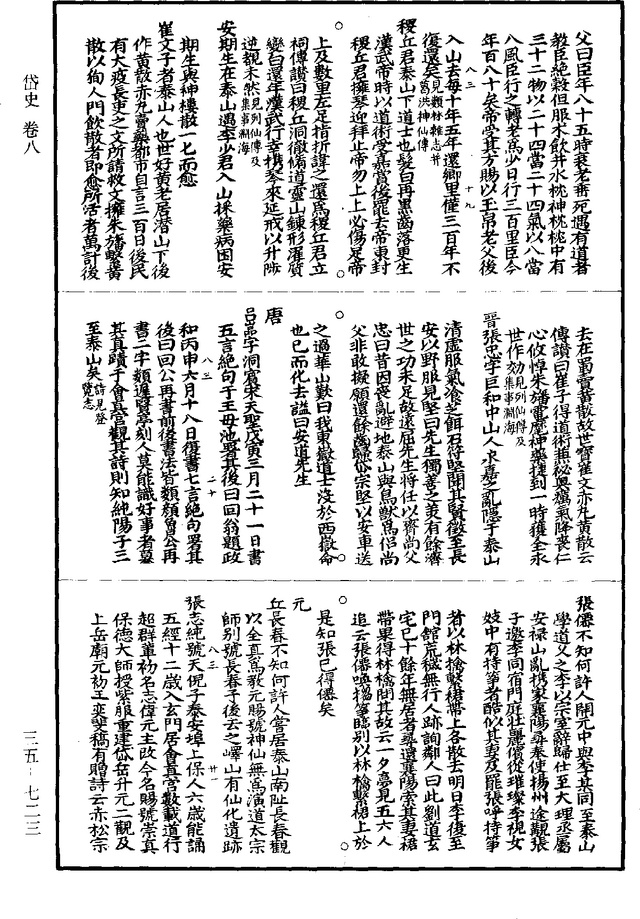 岱史 卷八
三五·七二三
父曰臣年八十五時衰老垂死遇有道者
教臣絶穀但服朮飲井水枕神枕枕中有
三十二物以二十四當二十四氣以八當
八風臣行之轉老爲少日行三百里臣今
年百八十矣帝受其方賜以玉帛老父後
入山去每十年五年還鄉里僅三百年不
復還矣見類林雜志并葛洪神仙傳
稷丘君泰山下道士也髮白再黑齒落更生
漢武帝時以道術受嘉賞後罷去帝東封
稷丘君擁琴迎拜止帝勿上上必傷足帝
上及數里左足指折諱之還爲稷丘君立
祠傳讚曰稷丘洞徹脩道靈山鍊形濯質
變白還年漢武行幸携琴來延戒以升陟
逆覩未然見列仙傳及集事淵海
安期生在泰山遇李少君入山採藥病困安
期生與神樓散一七而愈
崔文子者泰山人也世好黃老居潛山下後
作黃散赤丸賣藥都市自言三百日後民
有大疫長吏之文所請救文擁朱旛繫黃
散以徇人門飲散者即愈所活者萬計後
去在蜀賣黃散故世寶崔文赤丸黃散云
傳讚曰崔子得道術兼秘奧癘氣降喪仁
心攸悼朱旛電麾神藥捷到一時獲全永
世作効見列仙傳及集事淵海
晉張忠字巨和中山人永嘉之亂隱于泰山
清虛服氣飡芝餌石符堅聞其賢徵至長
安以野服見堅曰先生獨善之美有餘濟
世之功未足故遠屈先生將任以齊尚父
忠曰昔因喪亂避地泰山與鳥獸爲侶尚
父非敢擬願還餘齒歸岱宗堅以安車送
之過華山歎曰我東嶽道士沒於西嶽命
也已而化去謚曰安道先生
唐
呂嵒字洞賓宋天聖戊寅三月二十一日書
五言絶句于王母池署其後曰回翁題政
和丙申六月十八日復書七言絶句署其
後曰回公再書前後書法皆類顏魯公再
書二字類連賢亭刻人莫能識好事者摹
其真蹟于會真宮觀其詩則知純陽子三
至泰山矣詩見登覽志
張僊不知何許人開元中與李某同至泰山
學道乂之李以宗室辭歸仕至大理丞屬
安祿山亂携家襄陽尋奉使揚州途覯張
子邀李同宿門庭壯麗儐從璀璨李視女
妓中有持箏者酷似其妻及罷張呼持箏
者以林檎繫裙帶上各散去明日李復至
門館荒穢無行人跡詢鄰人曰此劉道玄
宅已十餘年無居者尋還襄陽索其妻裙
帶果得林檎問其故云一夕夢見五六人
追云張僊喚搊箏臨別以林檎繫裙上於
是知張已得僊矣
元
丘長春不知何許人嘗居泰山南阯長春觀
以全真爲教元賜號神仙無爲演道太宗
師別號長春子後去之嶧山有仙化遺跡
張志純號天倪子泰安埠上保人六歲能誦
五經十二歲入玄門居會真宮數載道行
超群輩初名志偉元主改今名賜號崇真
保德大師授紫服重建岱岳升元二觀及
上岳廟元初王奕斐稿有贈詩云赤松宗
八三
十九
八三
二十
八三
廿一